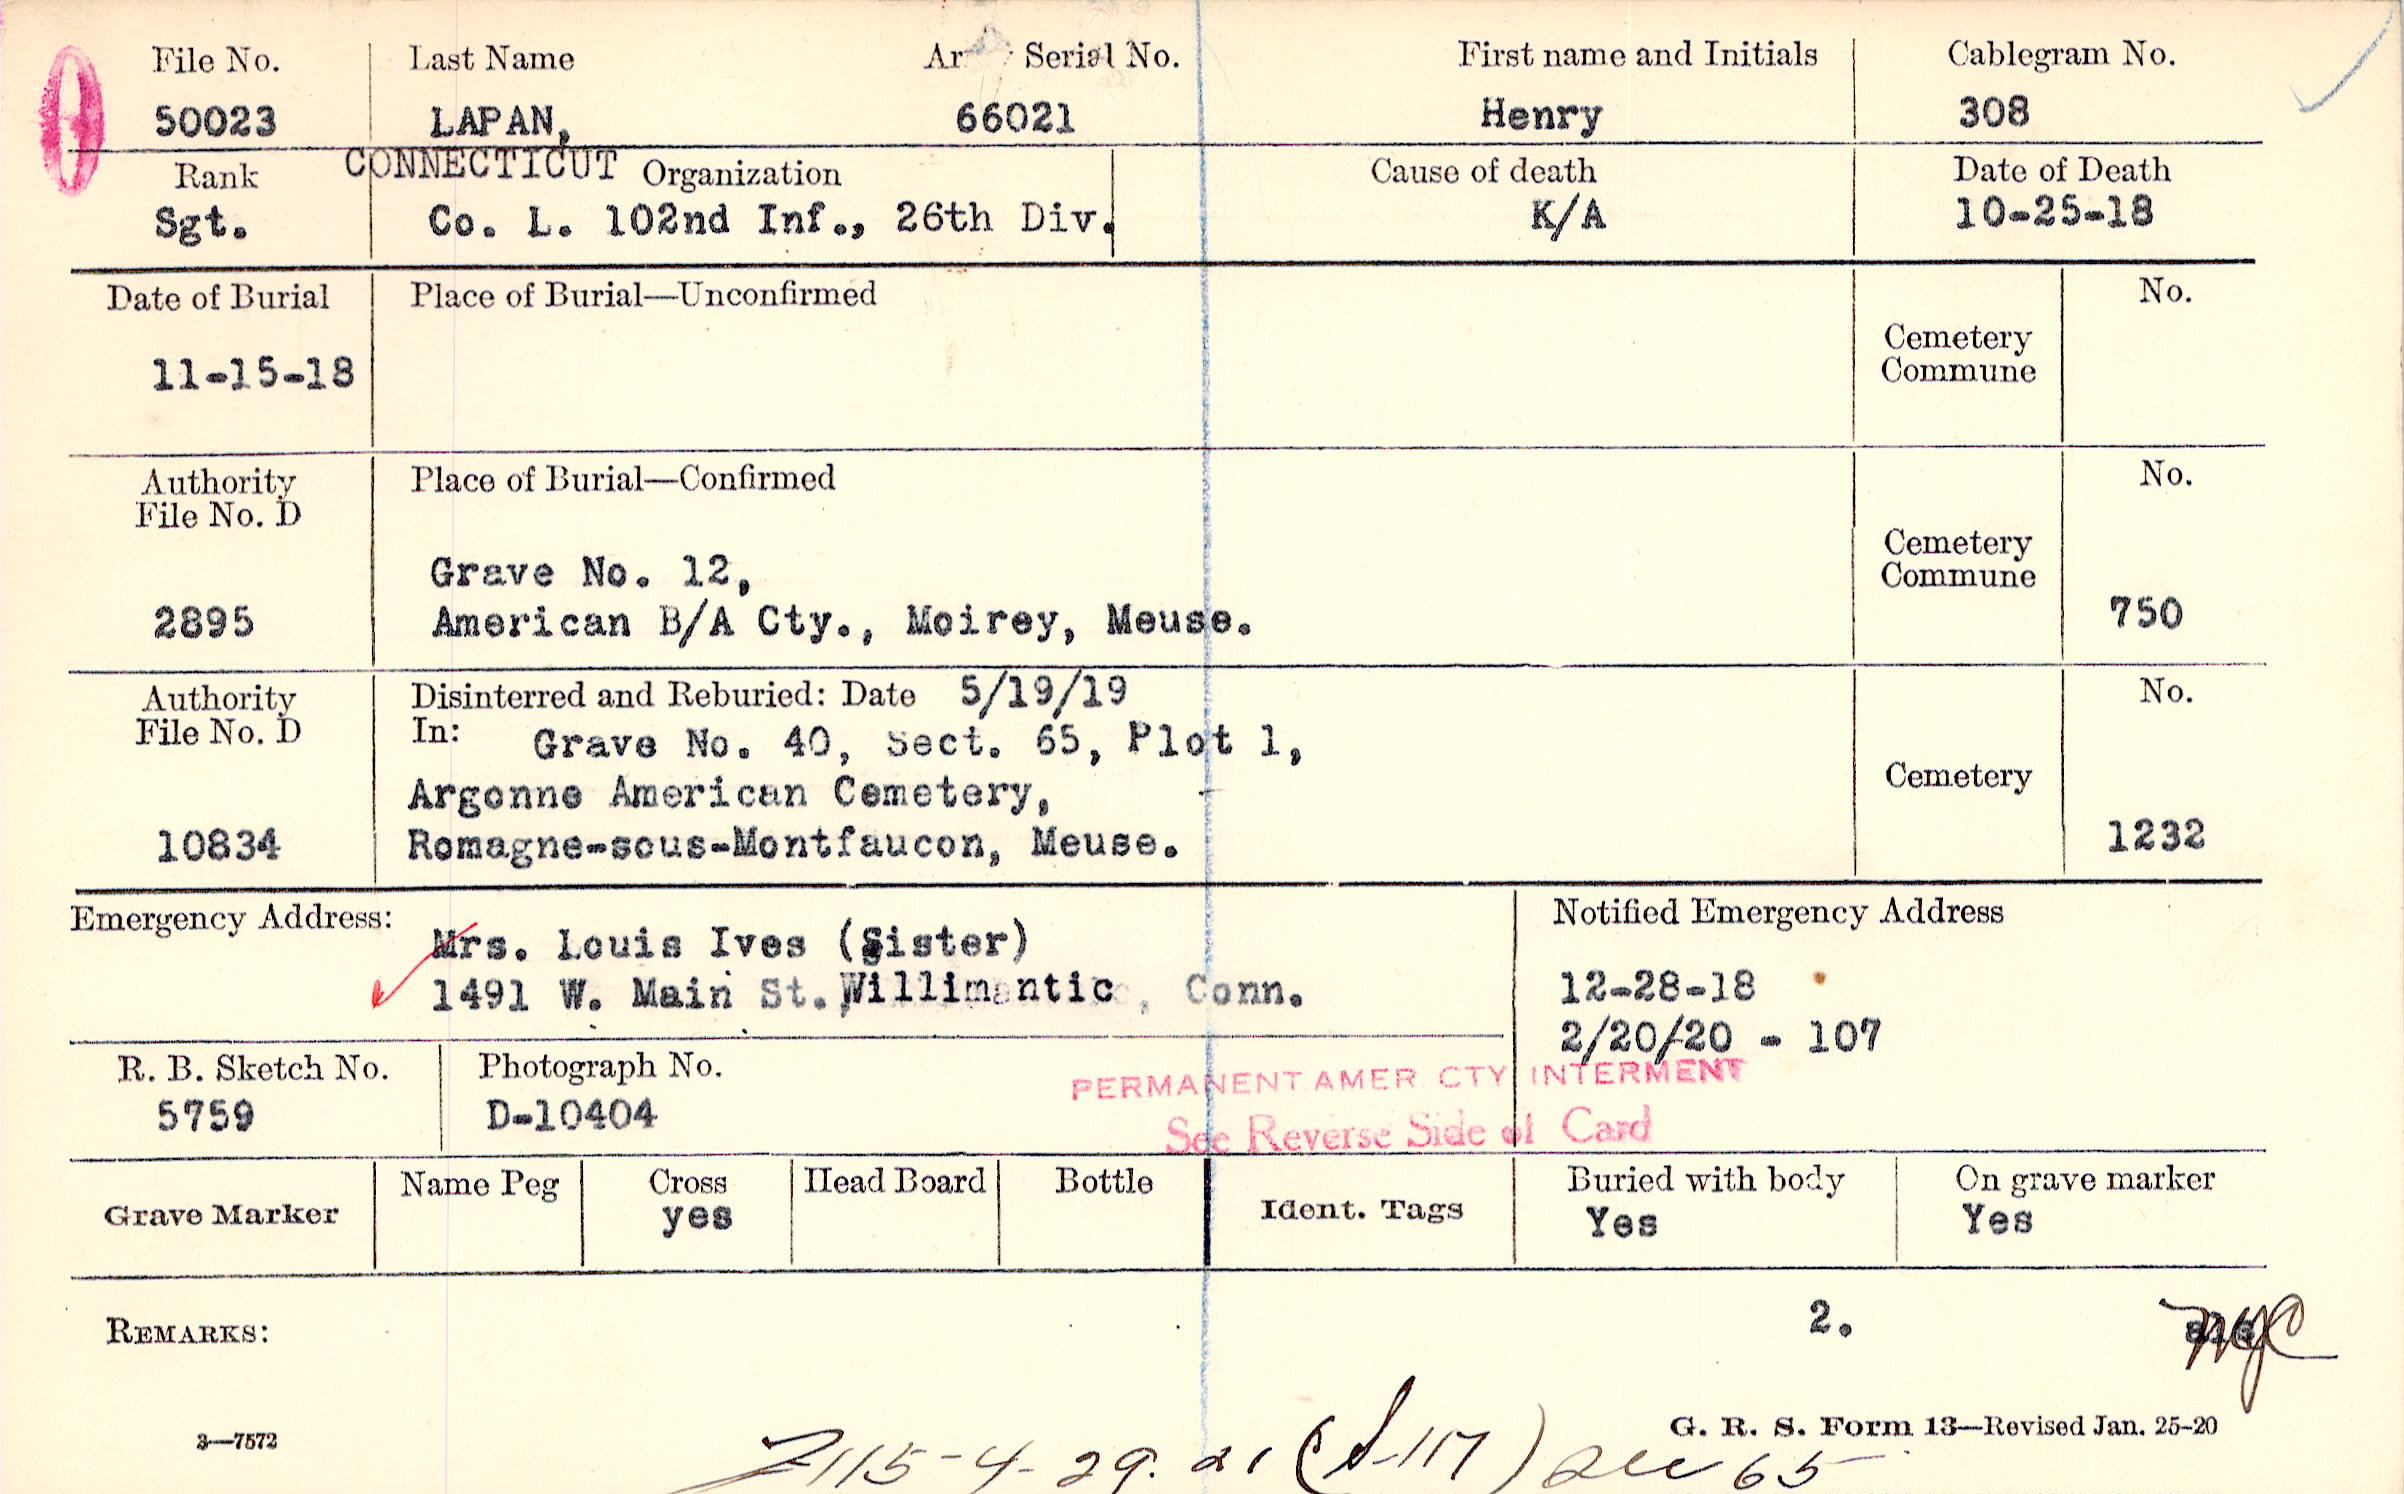 File No. Last Name Army Serial No. First name and Initials Cablegram No.
50023 LAPAN, 66021 Henry 308
CONNECTICUT
Rank Organization Cause of death Date of Death
Sgt. Co. L. 102nd Inf., 26th Div. K/A 10-25-18
Date of Burial Place of Burial—Unconfirmed No.
11-15-18 Cemetery
Commune
Authority Place of Burial—Confirmed No.
File No. D
Cemetery
Grave No. 12, Commune
2895 American B/A Cty., Moirey, Meuse. 750
Authority Disinterred and Reburied: Date 5/19/19 No.
File No. D In: Grave No. 40, Sect. 65, Plot 1,
Argonne American Cemetery, Cemetery
10834 Romagne-sous-Montfaucon, Meuse. 1232
Emergency Address: Notified Emergency Address
Mrs. Louis Ives (Sister)
1491 W. Main St., Willimantic, Conn. 12-28-18
2/20/20 - 107
R. B. Sketch No. Photograph No.
5759 D-10404
PERMANENT AMER CTY INTERMENT
See Reverse Side of Card
Grave Marker Name Peg Cross Head Board Bottle Ident. Tags Buried with body On grave marker
yes Yes Yes
REMARKS: 2.
G. R. S. Form 13—Revised Jan. 25-20
3—7572
115-4-29.21 (S-117) 65